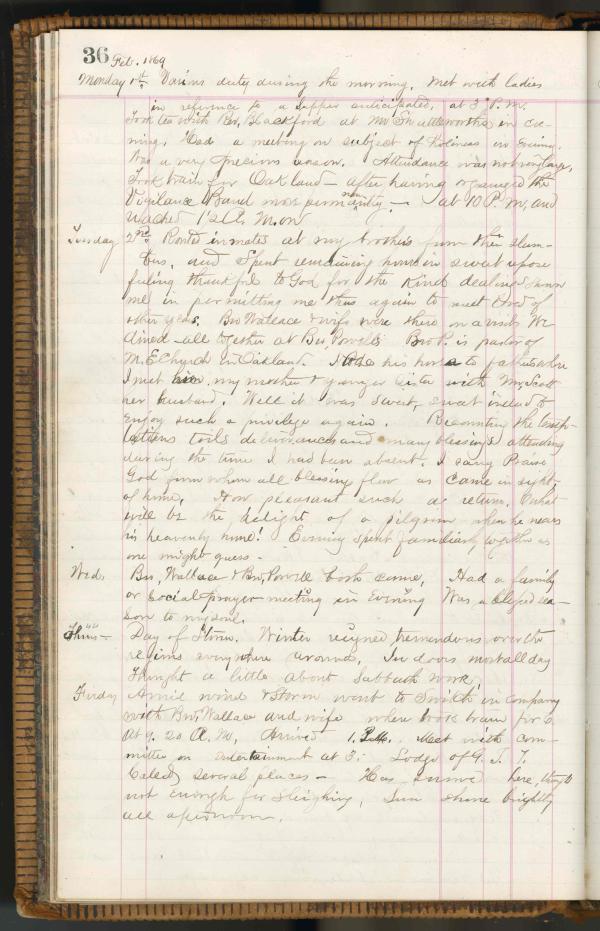 36 Feb. 1869
Monday 1st. Various duty during the morning. Met with ladies
in reference to a supper anticipated, at 3 P. M.
Took tea with Bro. Blackford at Mr Shuttleworths in eve-
ning. Had a meeting on subject of Holiness in Evening.
Was a very precious season. Attendance was not very large,
Took train for Oakland – after having organized the
Vigilance Band more permanently – at 10 P. M. and
reached 12 A. M. on
Tuesday 2nd. Routed inmates at my brother's from their slum-
bers, and spent remaining hours in sweet repose
feeling thankful to God for the kind dealings shown
me in permitting me thus again to meet
other years. Bro Wallace & wife were there on a visit. We
dined all together at Bro. Powells. Bro P. is pastor of
M. E Church in Oakland. I rode his horse to fathers where
I met my mother & younger sister with Mr. Scott
her husband. Well it was sweet, sweet indeed to
enjoy such a privilege again. Recounting the temp-
tations toils deliverances and many blessings attending
during the time I had been absent. I sang Praise
God from whom all blessing flow as came in sight
of home. How pleasant such a return. What
will be the delight of a pilgrim when he nears
his heavenly home! Evening spent familiarly together as
one might guess –
Wed. Bro, Wallace & Bro, Powell both came, Had a family
or social prayer-meeting in Evening Was a blessed sea-
son to my soul.
Thurs – 4th Day of Storm. Winter reigned tremendous over the
regions everywhere around. In doors most all day
Thought a little about Sabbath work,
Friday Amid wind & storm went to Switch in company
with Bro, Wallace and wife where took train for
at 9. 20 A. M, Arrived 1. P.M. Meet with com-
mittee on entertainment at 3. – Lodge of G. T.
Called several places – Has snowed here, tho
not enough for sleighing, Sun shone brightly
all afternoon.